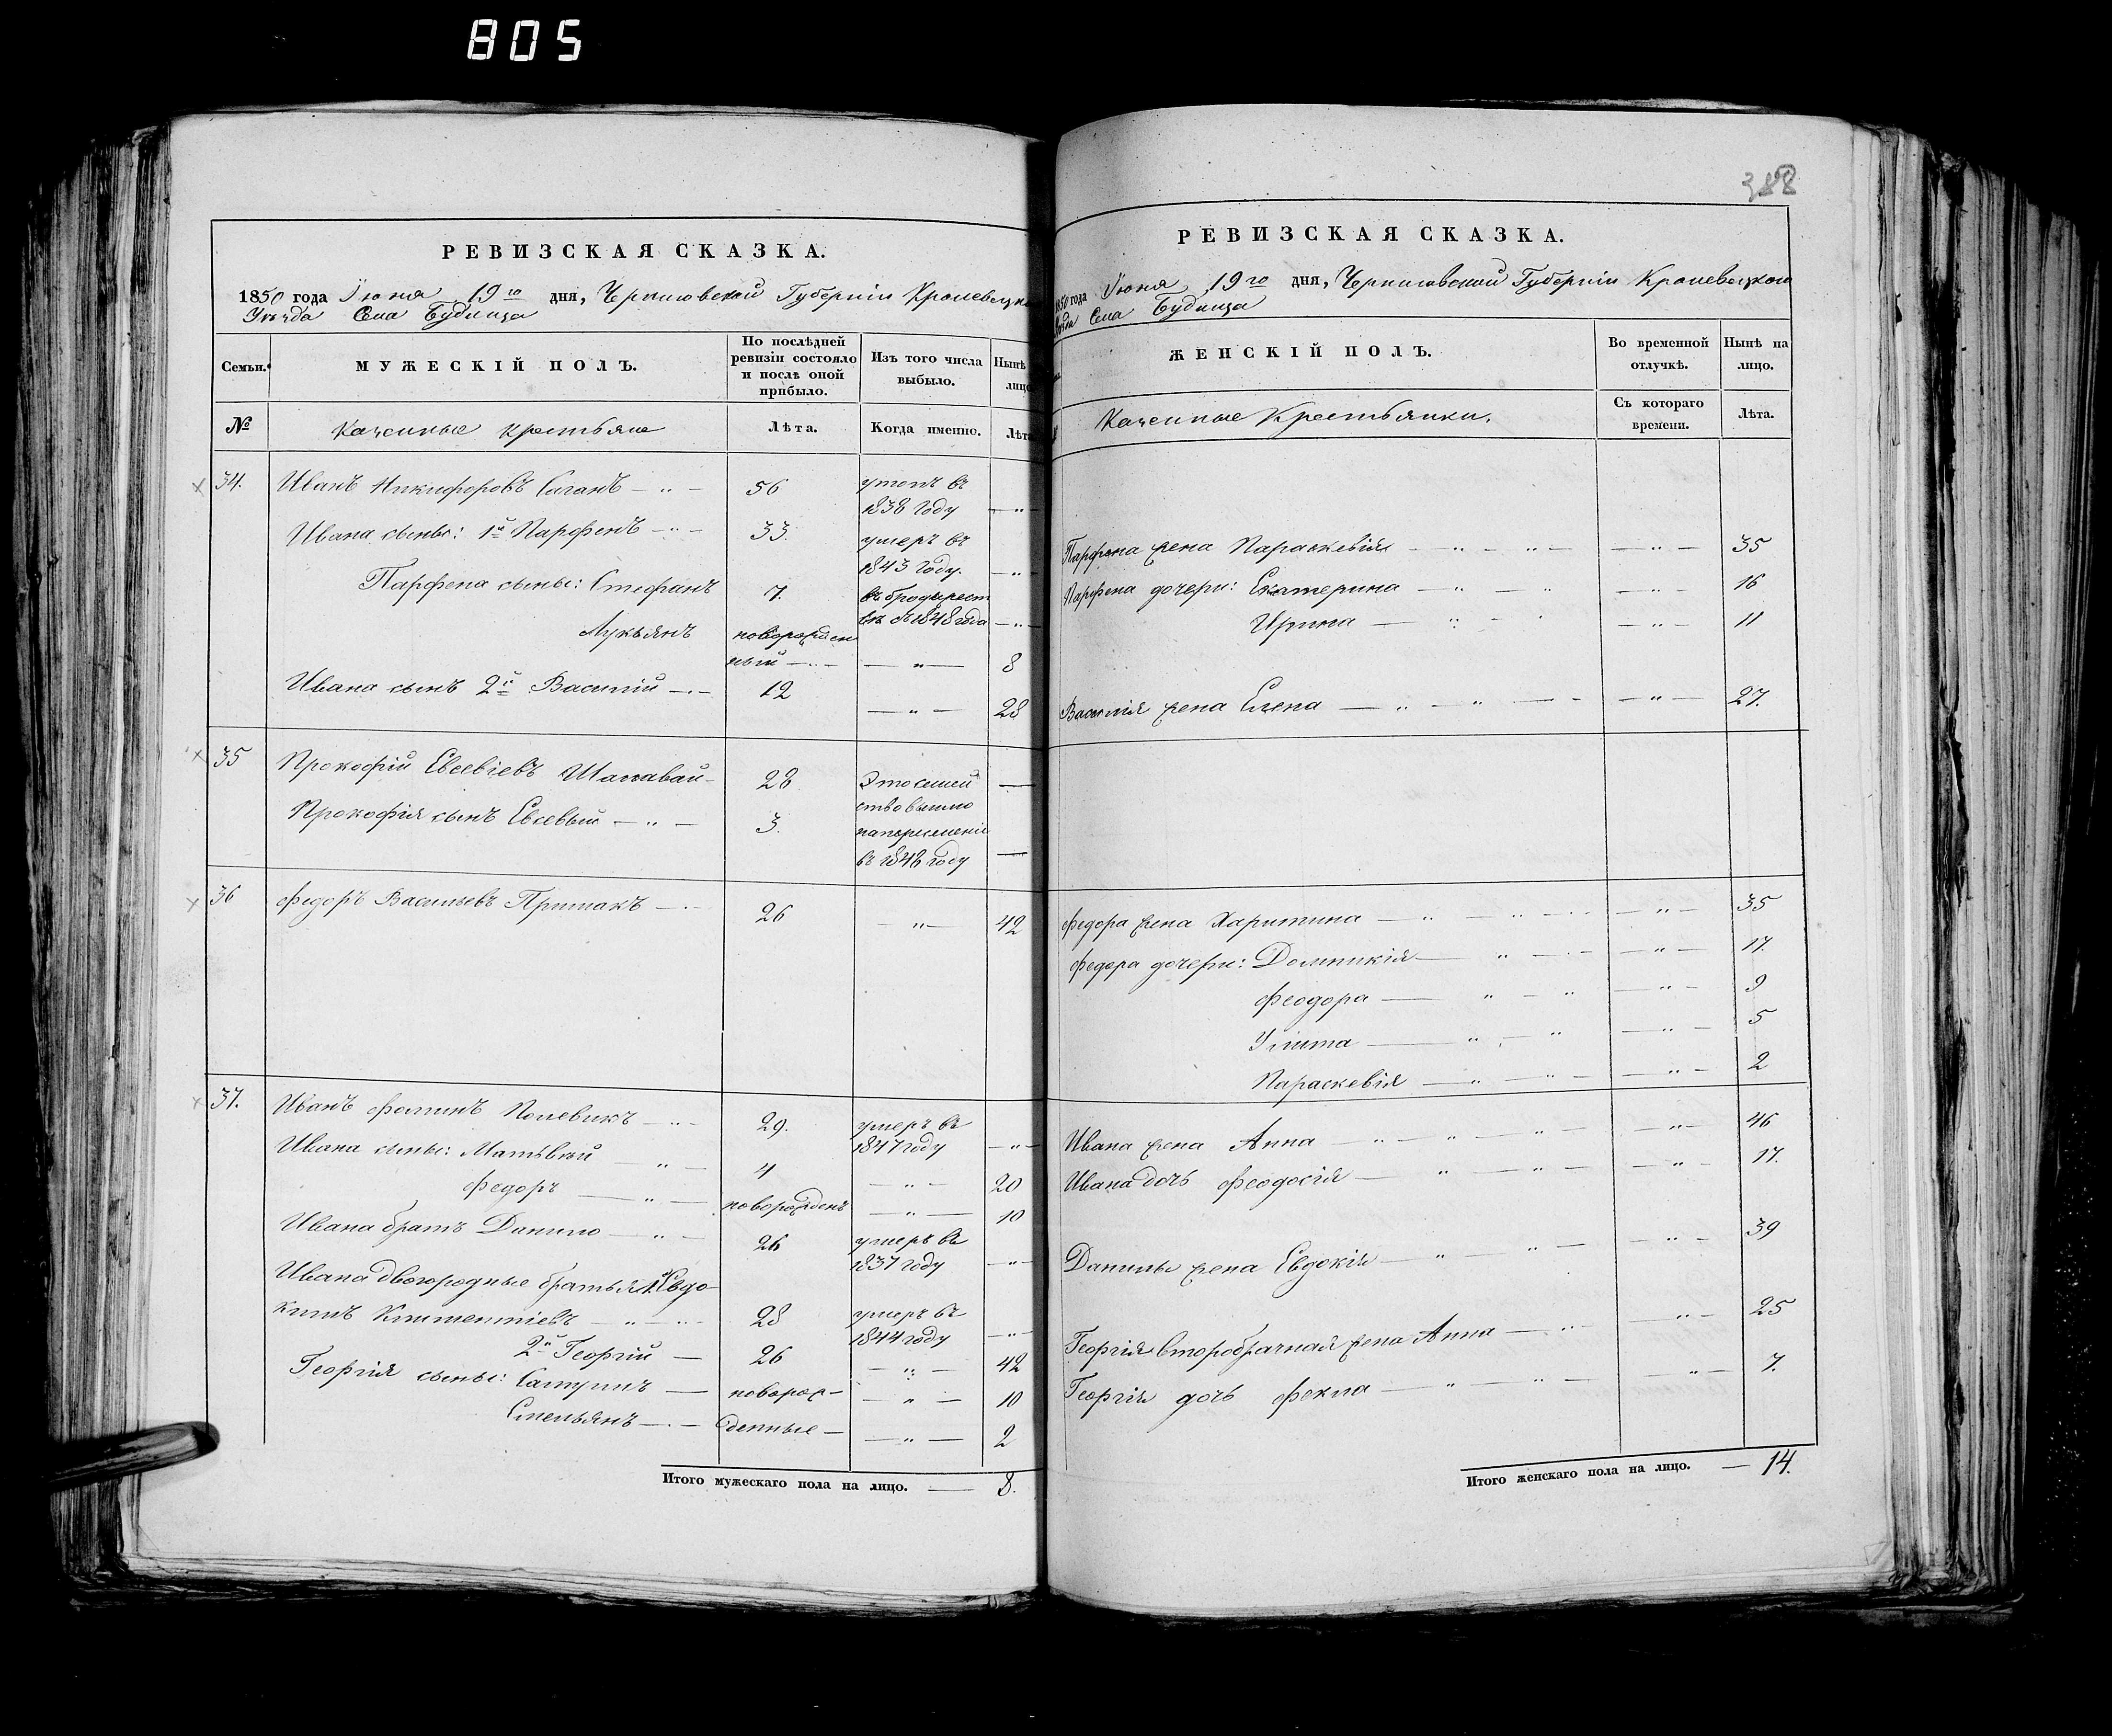 805
388
РЕВИЗСКАЯ СКАЗКА.
1850 года Іюня 19го дня, Черниговской Губерніи Кролевецка
Уѣзда Села Будища
Семьи.
МУЖЕСКІЙ ПОЛЪ.
По послѣдней ревизіи состояло и послѣ оной прибыло.
Изъ того числа выбыло.
Нынѣ лицо
№
Казенные крестьяне
Лѣта.
Когда именно.
Лѣта
34. Иванъ Никифоровъ — „ — 56 утопъ въ
1838 году — „ —
Ивана сыны: 1й Парфенъ — „ — 33. умеръ въ
1843 году. — „ —
Парфена сыны: Стефанъ 7. въ бродяжест
вѣ съ 1848 года — „ —
Лукьянъ новорожден
ный — „ — — „ — 8
Ивана сынъ 2й Василій — „ — 12 — „ — 28
35 Прокофій Евсевіевъ Шаповал 28. Это семей —
ство вышло
Прокофія сынъ Евсевій — „ — 3. на переселеніе
въ 1848 году —
36 Федоръ Васильевъ Примакъ — „ — 26 — „ — 42
37. Иванъ Фоминъ Полевикъ — „ — 29. умеръ въ
1847 году — „ —
Ивана сыны: Матьвѣй — „ — 4 — „ — 20
Федоръ — „ — новорожденъ — „ — 10
Ивана братъ Данило — „ — 26 умеръ въ
1837 году — „ —
Ивана двоюродные братья 1й Евдо-
кимъ Климентіевъ — „ — „ 28 умеръ въ
1844 году — „ —
2й Георгій — 26 — „ — 42
Георгія сыны: — новорож- — „ — 10
Емельянъ — „ — денные — — „ — 2
Итого мужескаго пола на лицо. — 8.
РЕВИЗСКАЯ СКАЗКА.
1850 года Іюня 19го дня, Черниговской Губерніи Кролевецкого
Уѣзда Села Будища
ЖЕНСКІЙ ПОЛЪ.
Во временной отлучкѣ.
Нынѣ на лицо.
Казенные Крестьянки.
Съ котораго времени.
Лѣта.
Парфена жена Параскевія — „ — „ — — „ — 35
Парфена дочери: Екатерина — „ — „ — „ — 16
Ирина — „ — „ — „ — 11
Василія жена Елена — „ — „ — — — „ — 27.
Федора жена Харитина — „ „ — — „ — 35
Федора дочери: Домникія — „ — — „ — 17.
Феодора — „ — „ — „ — 9
Улита — „ — „ — „ — 5
Параскевія — „ — „ — — „ — 2
Ивана жена Анна — „ — „ — „ — — „ — 46
Ивана дочь Феодосія — „ — „ — — „ — 17.
Данилы жена Евдокія — „ — „ — — „ — 39
Георгія второбрачная жена Анна — „ — — „ — 25
Георгія дочь Фекла — „ — „ — — „ — 7.
Итого женскаго пола на лицо. — 14.